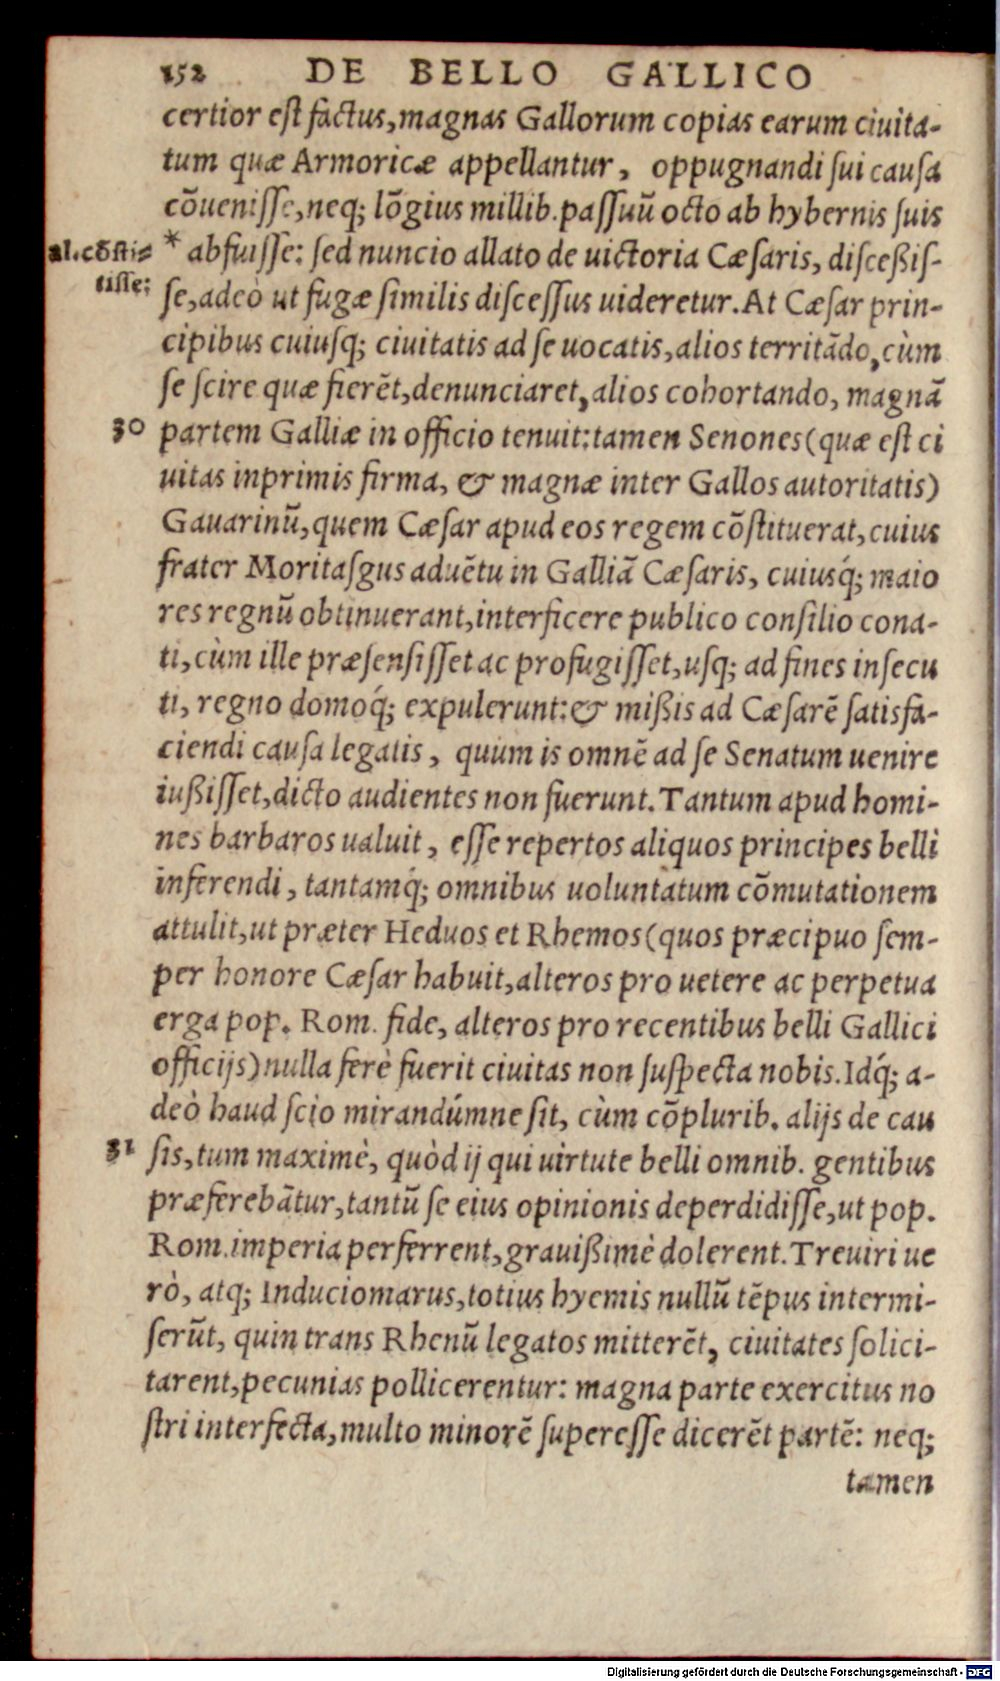 152 DE BELLO GALLICO
certior eſt factus, magnas Gallorum copias earum ciuita-
tum quæ Armoricæ appellantur, oppugnandi ſui cauſa
cōueniſſe, neq; lōgius millib. paſſuū octo ab hybernis ſuis
al. cōſti-
tiſſe:
* abfuiſſe: ſed nuncio allato de uictoria Cæſaris, diſceßiſ-
ſe, adeò ut fugæ ſimilis diſceſſus uideretur. At Cæſar prin-
cipibus cuiuſq; ciuitatis ad ſe uocatis, alios territādo, cùm
ſe ſcire quæ fierēt, denunciaret, alios cohortando, magnā
30 partem Galliæ in officio tenuit: tamen Senones (quæ eſt ci
uitas inprimis firma, & magnæ inter Gallos autoritatis)
Gauarinū, quem Cæſar apud eos regem cōſtituerat, cuius
frater Moritaſgus aduētu in Galliā Cæſaris, cuiusq́; maio
res regnū obtinuerant, interficere publico conſilio cona-
ti, cùm ille præſenſiſſet ac profugiſſet, uſq; ad fines inſecu
ti, regno domoq́; expulerunt: & mißis ad Cæſarē ſatisfa-
ciendi cauſa legatis, quum is omnē ad ſe Senatum uenire
iußiſſet, dicto audientes non fuerunt. Tantum apud homi-
nes barbaros ualuit, eſſe repertos aliquos principes belli
inferendi, tantamq́; omnibus uoluntatum cōmutationem
attulit, ut præter Heduos et Rhemos (quos præcipuo ſem-
per honore Cæſar habuit, alteros pro uetere ac perpetua
erga pop. Rom. fide, alteros pro recentibus belli Gallici
officijs) nulla ferè fuerit ciuitas non ſuſpecta nobis. Idq́; a-
deò haud ſcio mirandúmne ſit, cùm cōplurib. alijs de cau
31 ſis, tum maximè, quòd ij qui uirtute belli omnib. gentibus
præferebātur, tantū ſe eius opinionis deperdidiſſe, ut pop.
Rom. imperia perferrent, grauißimè dolerent. Treuiri ue
rò, atq; Induciomarus, totius hyemis nullū tēpus intermi-
ſerūt, quin trans Rhenū legatos mitterēt, ciuitates ſolici-
tarent, pecunias pollicerentur: magna parte exercitus no
ſtri interfecta, multo minorē ſupereſſe dicerēt partē: neq;
tamen
Digitalisierung gefördert durch die Deutsche Forschungsgemeinschaft - DFG